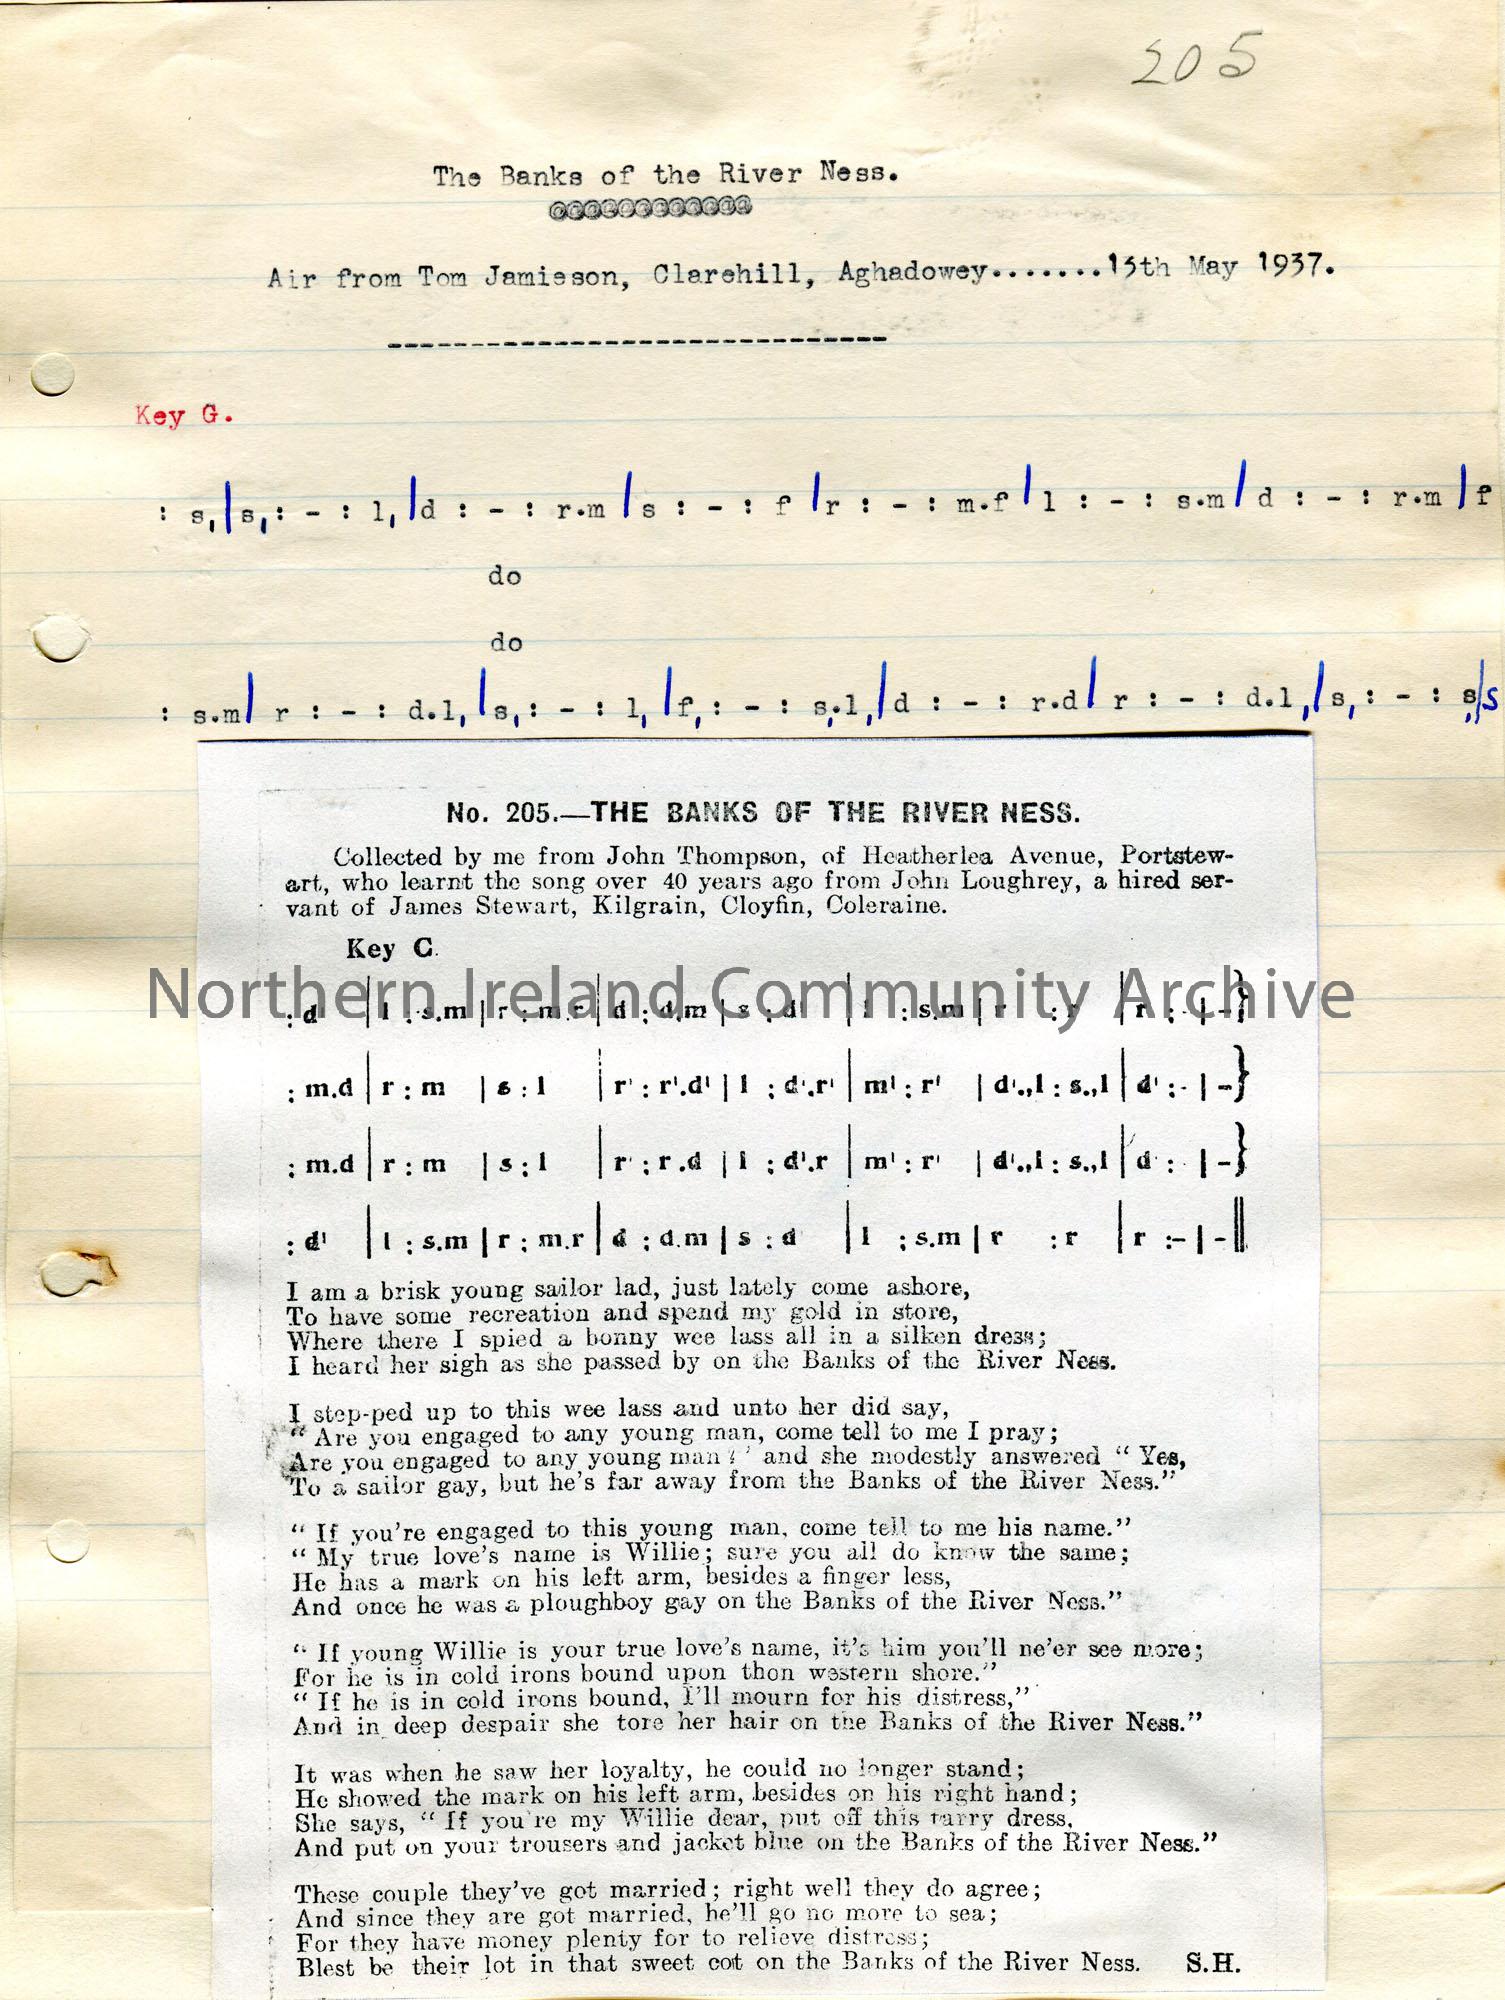 205
The Banks of the River Ness.
@@@@@@@@@@@@
Air from Tom Jamieson, Clarehill, Aghadowey.......15th May 1937.
------------------------------
Key G.
: s,|s,: - : l,|d : - : r.m |s : - : f |r : - : m.f |l : - : s.m|d : - : r.m |f
do
do
: s.m| r : - : d.l,|s,: - : l,|f,: - : s,.l,|d : - : r.d| r : - : d.l,|s,: - : s,|s
No. 205.—THE BANKS OF THE RIVER NESS.
Collected by me from John Thompson, of Heatherlea Avenue, Portstew-
art, who learnt the song over 40 years ago from John Loughrey, a hired ser-
vant of James Stewart, Kilgrain, Cloyfin, Coleraine.
Key C.
Northern Ireland Community Archive
: d' | l : s.m | r : m.r | d : d.m | s : d' | l : s.m | r : r | r : - | - }
: m.d | r : m | s : l | r' : r'.d' | l : d'.r' | m' : r' | d'.,l : s.,l | d' : - | - }
: m.d | r : m | s : l | r' : r.d | l : d'.r | m' : r' | d'.,l : s.,l | d : | - }
: d' | l : s.m | r : m.r | d : d.m | s : d | l : s.m | r : r | r :- | - ||
I am a brisk young sailor lad, just lately come ashore,
To have some recreation and spend my gold in store,
Where there I spied a bonny wee lass all in a silken dress;
I heard her sigh as she passed by on the Banks of the River Ness.
I step-ped up to this wee lass and unto her did say,
“ Are you engaged to any young man, come tell to me I pray;
Are you engaged to any young man?” and she modestly answered “ Yes,
To a sailor gay, but he's far away from the Banks of the River Ness.”
“ If you're engaged to this young man, come tell to me his name.”
“ My true love's name is Willie; sure you all do know the same;
He has a mark on his left arm, besides a finger less,
And once he was a ploughboy gay on the Banks of the River Ness.”
“ If young Willie is your true love's name, it's him you'll ne'er see more;
For he is in cold irons bound upon thon western shore.”
“ If he is in cold irons bound, I'll mourn for his distress,”
And in deep despair she tore her hair on the Banks of the River Ness.”
It was when he saw her loyalty, he could no longer stand;
He showed the mark on his left arm, besides on his right hand;
She says, “ If you're my Willie dear, put off this tarry dress,
And put on your trousers and jacket blue on the Banks of the River Ness.”
These couple they've got married; right well they do agree;
And since they are got married, he'll go no more to sea;
For they have money plenty for to relieve distress;
Blest be their lot in that sweet cot on the Banks of the River Ness. S.H.